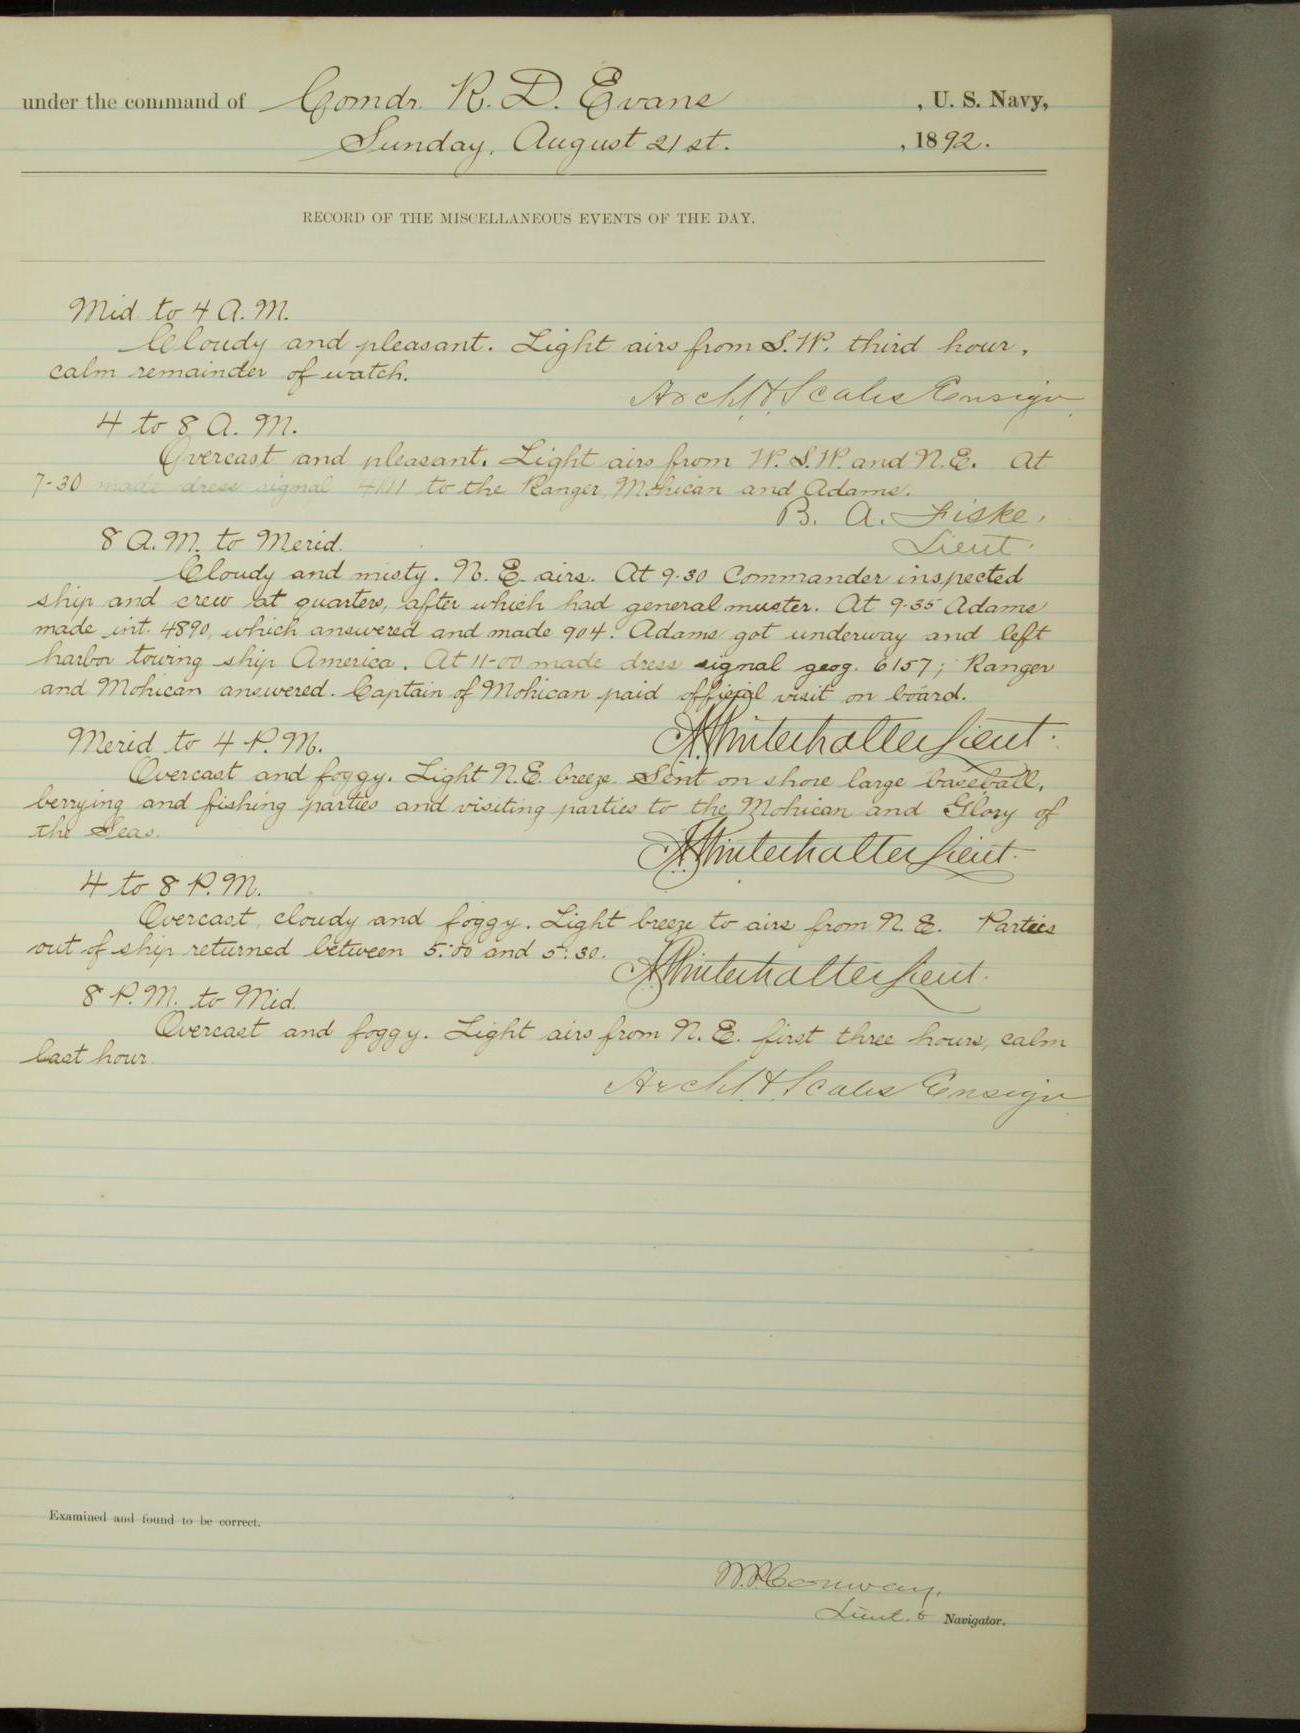 under the command of Comdr. R. D. Evans, U. S. Navy,
Sunday, August 21st. , 1892.
RECORD OF THE MISCELLANEOUS EVENTS OF THE DAY.
Mid to 4 A.M.
Cloudy and pleasant. Light airs from S.W. third hour,
calm remainder of watch.
Archd. H. Scales Ensign
4 to 8 A. M.
Overcast and pleasant. Light airs from W.S.W. and N.E. At
7-30 made dress signal 4111 to the Ranger, Mohican and Adams.
B. A. Fiske,
Lieut.
8 A.M. to Merid.
Cloudy and misty. N. E. airs. At 9-30 Commander inspected
ship and crew at quarters, after which had general muster. At 9-35 Adams
made int. 4890, which answered and made 904. Adams got underway and left
harbor towing ship America. At 11-00 made dress signal geog. 6157; Ranger
and Mohican answered. Captain of Mohican paid official visit on board.
Winterhalter Lieut.
Merid to 4 P.M.
Overcast and foggy. Light N.E. breeze. Sent on shore large baseball,
berrying and fishing parties and visiting parties to the Mohican and Glory of
the Seas.
Winterhalter Lieut.
4 to 8 P.M.
Overcast, cloudy and foggy. Light breeze to airs from N. E. Parties
out of ship returned between 5:00 and 5:30.
Winterhalter Lieut.
8 P.M. to Mid.
Overcast and foggy. Light airs from N. E. first three hours, calm
last hour.
Archd. H. Scales Ensign
Examined and found to be correct.
W.P. Conway,
Lieut. & Navigator.